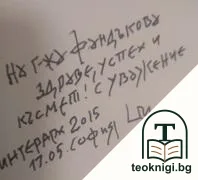 НА Г-ЖА ФАНДЪКОВА
ЗДРАВЕ, УСПЕХ И
КЪСМЕТ! С УВАЖЕНИЕ
ИНТЕРАРХ 2015
17.05. СОФИЯ
teoknigi.bg